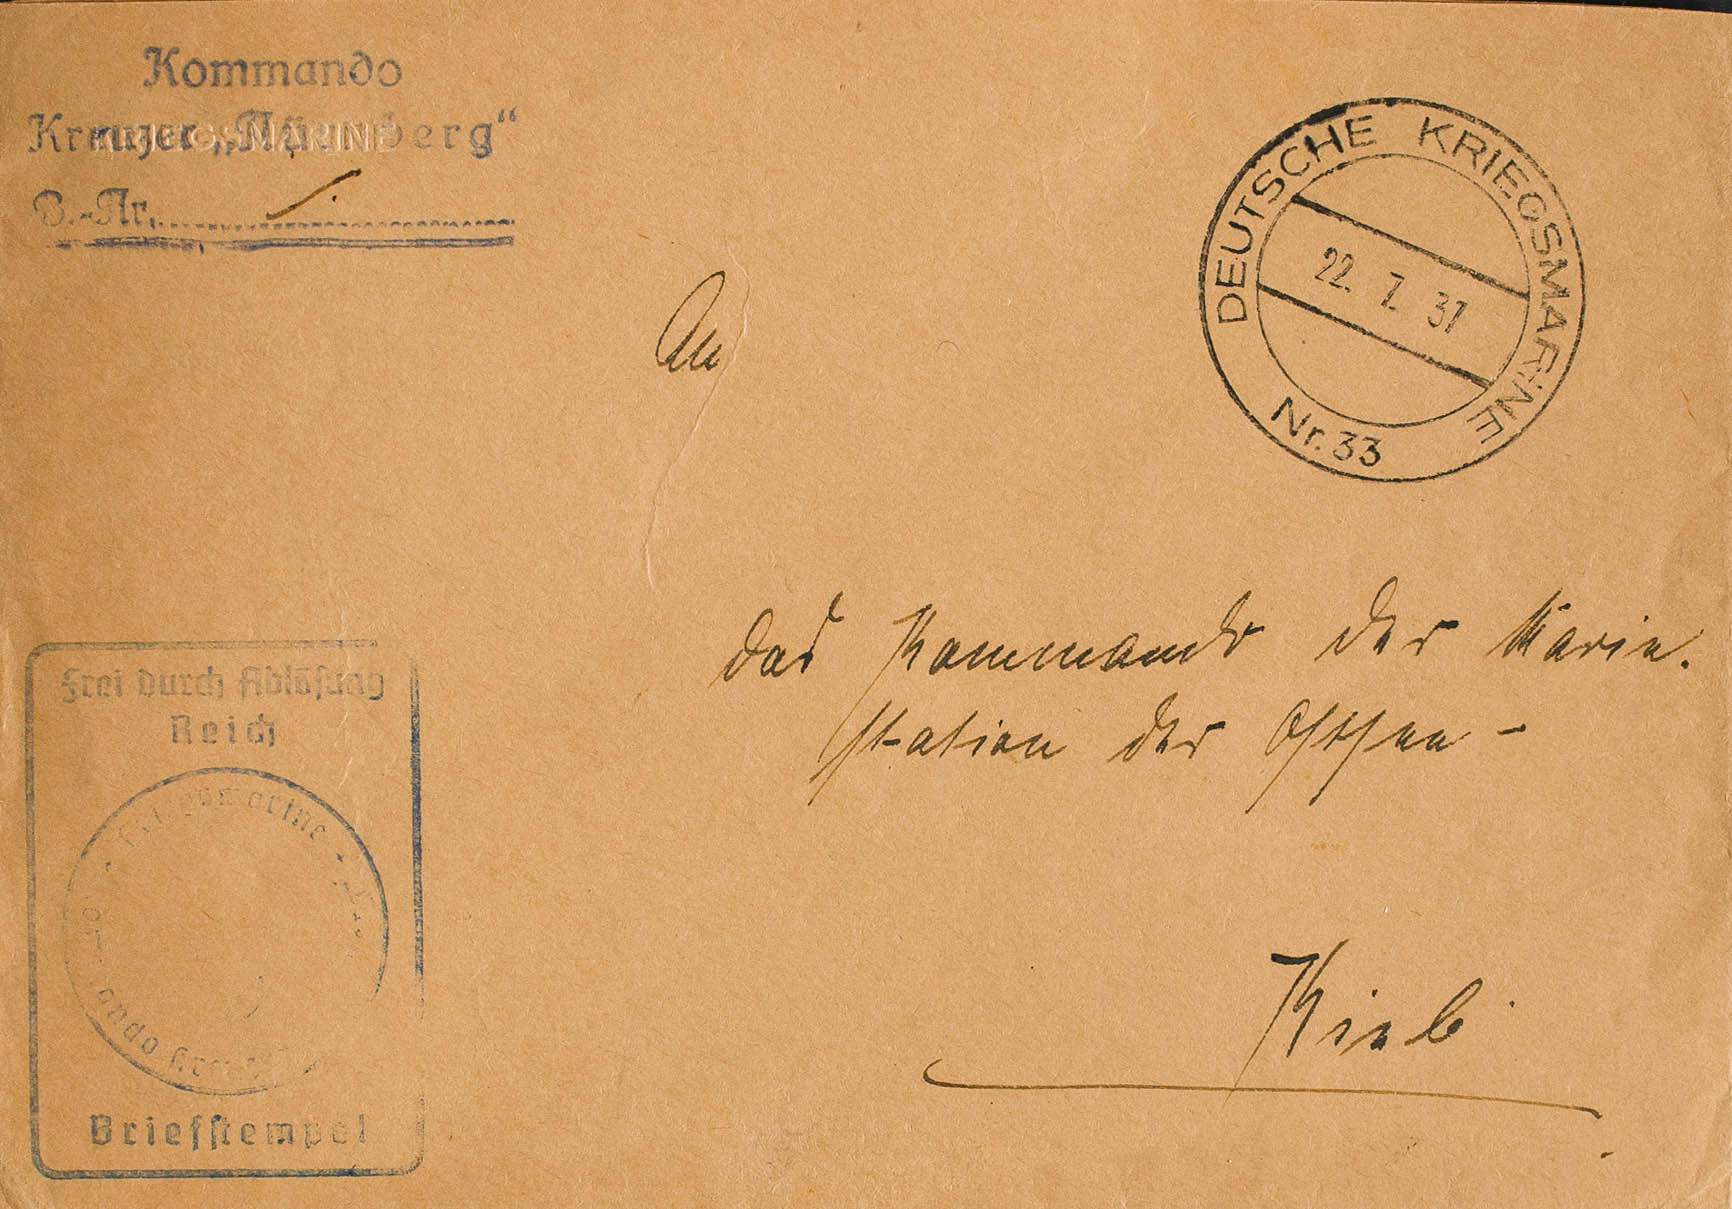 Kommando
Kreuzer „Nürnberg“
B.-Nr.
KRIEGSMARINE
DEUTSCHE KRIEGSMARINE
22. 7. 37
Nr. 33
An
das Kommando der Marin.
station der Ostsee -
Kiel
Frei durch Ablösung
Reich
Kriegsmarine
Briefstempel